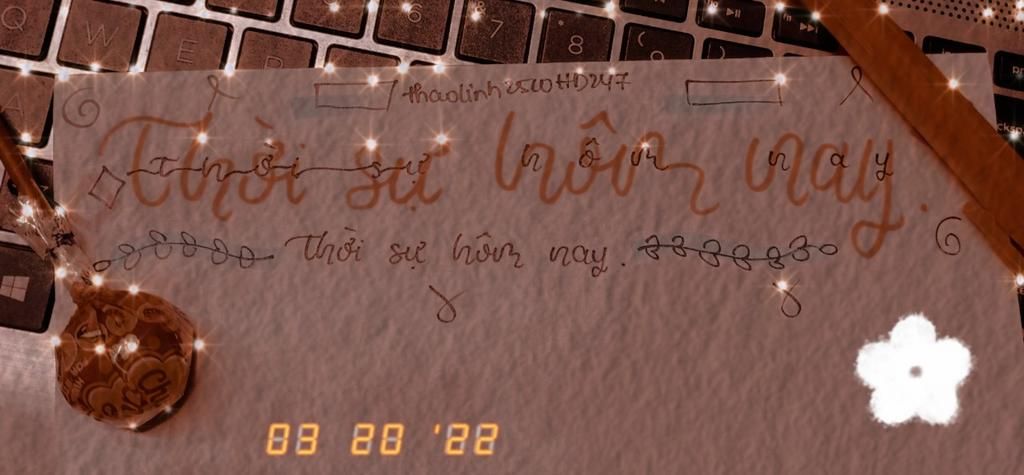 Q W E R 6 7 8 9
A
thaolinh2510HD247
Thời sự hôm nay.
Thời sự hôm nay
Thời sự hôm nay.
03 20 '22